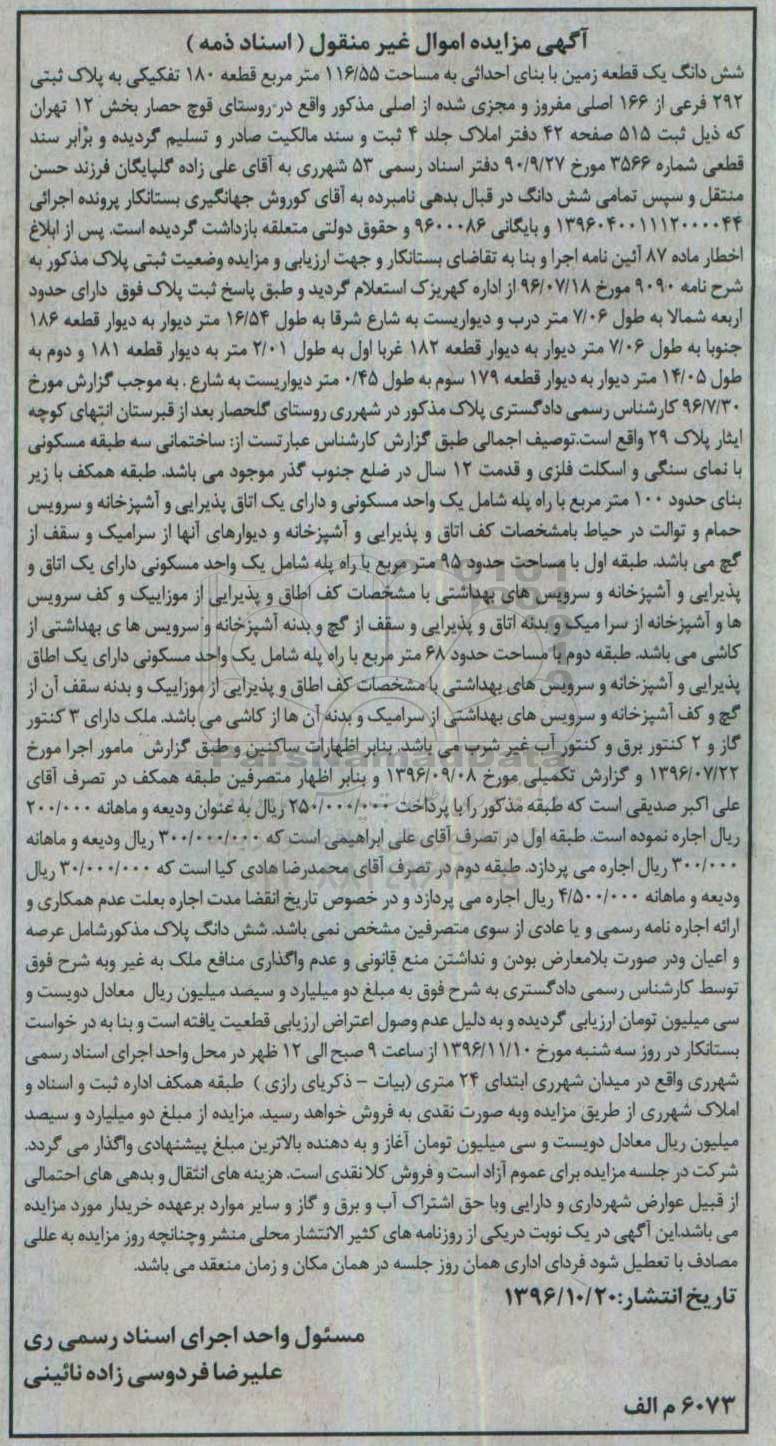 آگهی مزایده اموال غیر منقول ( اسناد ذمه )
شش دانگ یک قطعه زمین با بنای احداثی به مساحت ۱۱۶/۵۵ متر مربع قطعه ۱۸۰ تفکیکی به پلاک ثبتی
۲۹۲ فرعی از ۱۶۶ اصلی مفروز و مجزی شده از اصلی مذکور واقع در روستای قوچ حصار بخش ۱۲ تهران
که ذیل ثبت ۵۱۵ صفحه ۴۲ دفتر املاک جلد ۴ ثبت و سند مالکیت صادر و تسلیم گردیده و برابر سند
قطعی شماره ۳۵۶۶ مورخ ۹۰/۹/۲۷ دفتر اسناد رسمی ۵۳ شهرری به آقای علی زاده گلپایگان فرزند حسن
منتقل و سپس تمامی شش دانگ در قبال بدهی نامبرده به آقای کوروش جهانگیری بستانکار پرونده اجرائی
۱۳۹۶۰۴۰۰۱۱۱۲۰۰۰۰۴۴ و بایگانی ۹۶۰۰۰۸۶ و حقوق دولتی متعلقه بازداشت گردیده است. پس از ابلاغ
اخطار ماده ۸۷ آئین نامه اجرا و بنا به تقاضای بستانکار و جهت ارزیابی و مزایده وضعیت ثبتی پلاک مذکور به
شرح نامه ۹۰۹۰ مورخ ۹۶/۰۷/۱۸ از اداره کهریزک استعلام گردید و طبق پاسخ ثبت پلاک فوق دارای حدود
اربعه شمالا به طول ۷/۰۶ متر درب و دیواریست به شارع شرقا به طول ۱۶/۵۴ متر دیوار به دیوار قطعه ۱۸۶
جنوبا به طول ۷/۰۶ متر دیوار به دیوار قطعه ۱۸۲ غربا اول به طول ۲/۰۱ متر به دیوار قطعه ۱۸۱ و دوم به
طول ۱۴/۰۵ متر دیوار به دیوار قطعه ۱۷۹ سوم به طول ۰/۴۵ متر دیواریست به شارع . به موجب گزارش مورخ
۹۶/۷/۳۰ کارشناس رسمی دادگستری پلاک مذکور در شهرری روستای گلحصار بعد از قبرستان انتهای کوچه
ایثار پلاک ۲۹ واقع است.توصیف اجمالی طبق گزارش کارشناس عبارتست از: ساختمانی سه طبقه مسکونی
با نمای سنگی و اسکلت فلزی و قدمت ۱۲ سال در ضلع جنوب گذر موجود می باشد. طبقه همکف با زیر
بنای حدود ۱۰۰ متر مربع با راه پله شامل یک واحد مسکونی و دارای یک اتاق پذیرایی و آشپزخانه و سرویس
حمام و توالت در حیاط بامشخصات کف اتاق و پذیرایی و آشپزخانه و دیوارهای آنها از سرامیک و سقف از
گچ می باشد. طبقه اول با مساحت حدود ۹۵ متر مربع با راه پله شامل یک واحد مسکونی دارای یک اتاق و
پذیرایی و آشپزخانه و سرویس های بهداشتی با مشخصات کف اطاق و پذیرایی از موزاییک و کف سرویس
ها و آشپزخانه از سرا میک و بدنه اتاق و پذیرایی و سقف از گچ و بدنه آشپزخانه و سرویس ها ی بهداشتی از
کاشی می باشد. طبقه دوم با مساحت حدود ۶۸ متر مربع با راه پله شامل یک واحد مسکونی دارای یک اطاق
پذیرایی و آشپزخانه و سرویس های بهداشتی با مشخصات کف اطاق و پذیرایی از موزاییک و بدنه سقف آن از
گچ و کف آشپزخانه و سرویس های بهداشتی از سرامیک و بدنه آن ها از کاشی می باشد. ملک دارای ۳ کنتور
گاز و ۲ کنتور برق و کنتور آب غیر شرب می باشد. بنابر اظهارات ساکنین و طبق گزارش مامور اجرا مورخ
۱۳۹۶/۰۷/۲۲ و گزارش تکمیلی مورخ ۱۳۹۶/۰۹/۰۸ و بنابر اظهار متصرفین طبقه همکف در تصرف آقای
علی اکبر صدیقی است که طبقه مذکور را با پرداخت ۲۵۰/۰۰۰/۰۰۰ ریال به عنوان ودیعه و ماهانه ۲۰۰/۰۰۰
ریال اجاره نموده است. طبقه اول در تصرف آقای علی ابراهیمی است که ۳۰۰/۰۰۰/۰۰۰ ریال ودیعه و ماهانه
۳۰۰/۰۰۰ ریال اجاره می پردازد. طبقه دوم در تصرف آقای محمدرضا هادی کیا است که ۳۰/۰۰۰/۰۰۰ ریال
ودیعه و ماهانه ۴/۵۰۰/۰۰۰ ریال اجاره می پردازد و در خصوص تاریخ انقضا مدت اجاره بعلت عدم همکاری و
ارائه اجاره نامه رسمی و یا عادی از سوی متصرفین مشخص نمی باشد. شش دانگ پلاک مذکورشامل عرصه
و اعیان ودر صورت بلامعارض بودن و نداشتن منع قانونی و عدم واگذاری منافع ملک به غیر وبه شرح فوق
توسط کارشناس رسمی دادگستری به شرح فوق به مبلغ دو میلیارد و سیصد میلیون ریال معادل دویست و
سی میلیون تومان ارزیابی گردیده و به دلیل عدم وصول اعتراض ارزیابی قطعیت یافته است و بنا به در خواست
بستانکار در روز سه شنبه مورخ ۱۳۹۶/۱۱/۱۰ از ساعت ۹ صبح الی ۱۲ ظهر در محل واحد اجرای اسناد رسمی
شهرری واقع در میدان شهرری ابتدای ۲۴ متری (بیات – ذکریای رازی ) طبقه همکف اداره ثبت و اسناد و
املاک شهرری از طریق مزایده وبه صورت نقدی به فروش خواهد رسید. مزایده از مبلغ دو میلیارد و سیصد
میلیون ریال معادل دویست و سی میلیون تومان آغاز و به دهنده بالاترین مبلغ پیشنهادی واگذار می گردد.
شرکت در جلسه مزایده برای عموم آزاد است و فروش کلا نقدی است. هزینه های انتقال و بدهی های احتمالی
از قبیل عوارض شهرداری و دارایی ویا حق اشتراک آب و برق و گاز و سایر موارد برعهده خریدار مورد مزایده
می باشد.این آگهی در یک نوبت دریکی از روزنامه های کثیر الانتشار محلی منشر وچنانچه روز مزایده به عللی
مصادف با تعطیل شود فردای اداری همان روز جلسه در همان مکان و زمان منعقد می باشد.
تاریخ انتشار:۱۳۹۶/۱۰/۲۰
مسئول واحد اجرای اسناد رسمی ری
علیرضا فردوسی زاده نائینی
۶۰۷۳ م الف
ParsNamadData